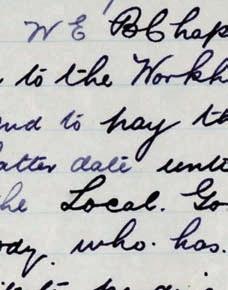 W E B Chap
to the Workh
nd to pay th
atter date unti
he Local. Go
ody. who. has.